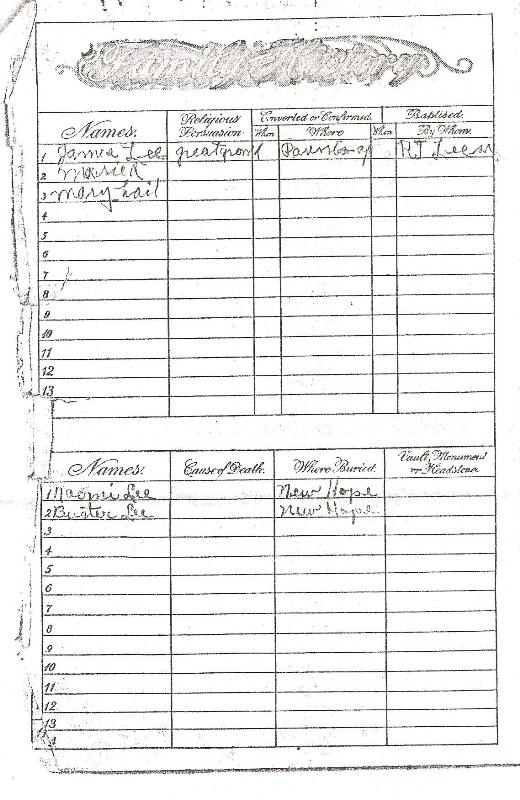 Family History
Names. Religious Persuasion Converted or Confirmed. When Where Baptised. When By Whom.
1 James Lee great grand of RJ Lee
2 Maried
3 Mary Hail
4
5
6
7
8
9
10
11
12
13
Names. Cause of Death. Where Buried. Vault, Monument or Headstone.
1 Naomi Lee New Hope
2 Buster Lee New Hope
3
4
5
6
7
8
9
10
11
12
13